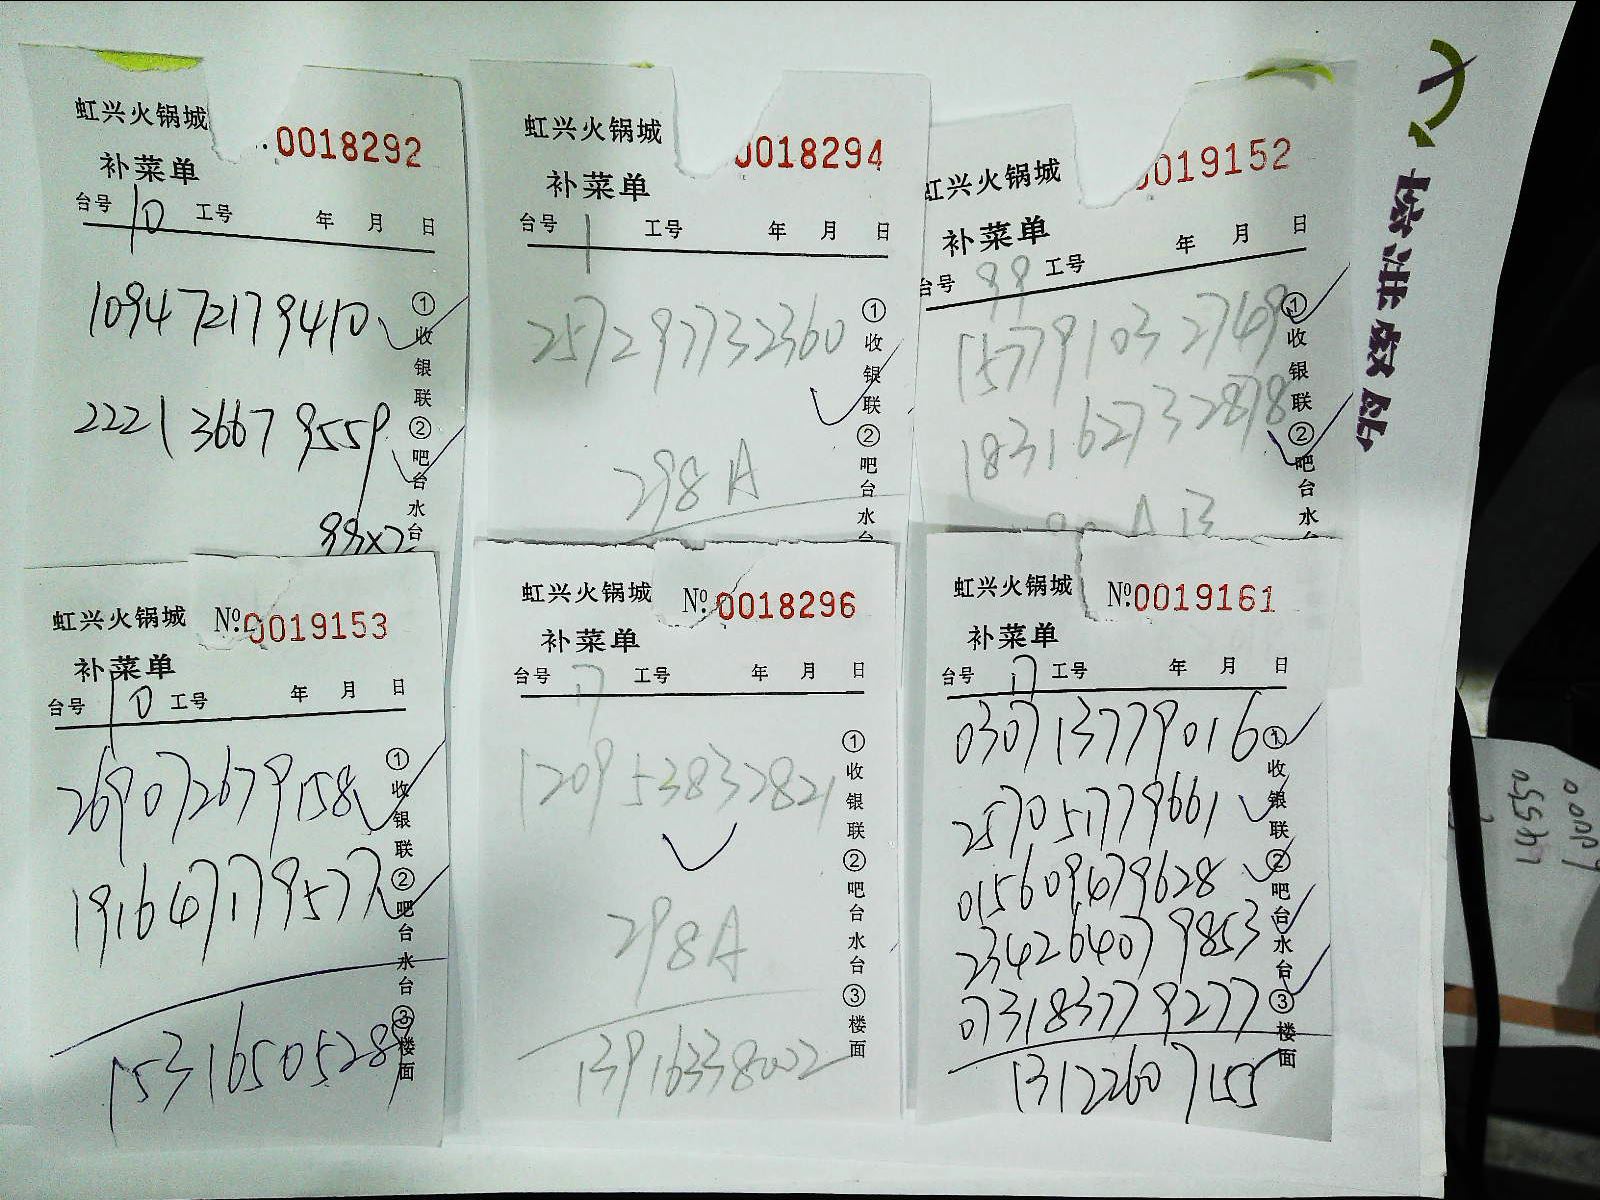 虹兴火锅城 0018292
补菜单
台号 10 工号 年 月 日
109472179410
222136679559
99x2
①收银联②吧台水台
虹兴火锅城 0018294
补菜单
台号 1 工号 年 月 日
257297732360
298A
①收银联②吧台水台
虹兴火锅城 0019152
补菜单
台号 99 工号 年 月 日
157791032769
183162732878
①收银联②吧台水
虹兴火锅城 №0019153
补菜单
台号 10 工号 年 月 日
269072679158
191647179577
15316505289
①收银联②吧台水台③楼面
虹兴火锅城 №0018296
补菜单
台号 17 工号 年 月 日
120953832821
298A
13916338002
①收银联②吧台水台③楼面
虹兴火锅城 №0019161
补菜单
台号 17 工号 年 月 日
030713779016
257051779661
015609479628
234264079853
073183779277
13122607155
①收银联②吧台水台③楼面